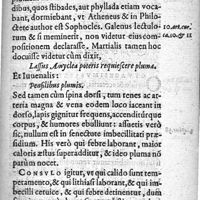 dibus, quos stibades, aut phyllada etiam vocabant, dormiebant, vt Athenæus & in Philoctete
author est Sophocles. Galenus lectulorum
& si meminerit, non videtur eius compositionem
declarasse. Martialis tamen hoc
docuisse videtur cùm dixit,
Lassus Amyclæa poteris requiescere pluma.
Et Iuuenalis:
Pensilibus plumis,
Sed tamen cùm spina dorsi, tum tenes ac arteria
magna & vena eodem loco iaceant in
dorso, lapis gignitur frequens, accenditur que
corpus, & humores ebulliunt: assuetis verò,
nullum est in senectute imbecillitati præsidium.
His verò qui febre laborant, maior
caloris æstus superadditur, & ideo pluma nõ
prodest.
CONSVLO igitur, vt qui calido sunt temperamento,
& qui lithiasi laborant, & qui imbecilli
ceruice, & qui febre detinentur, dum